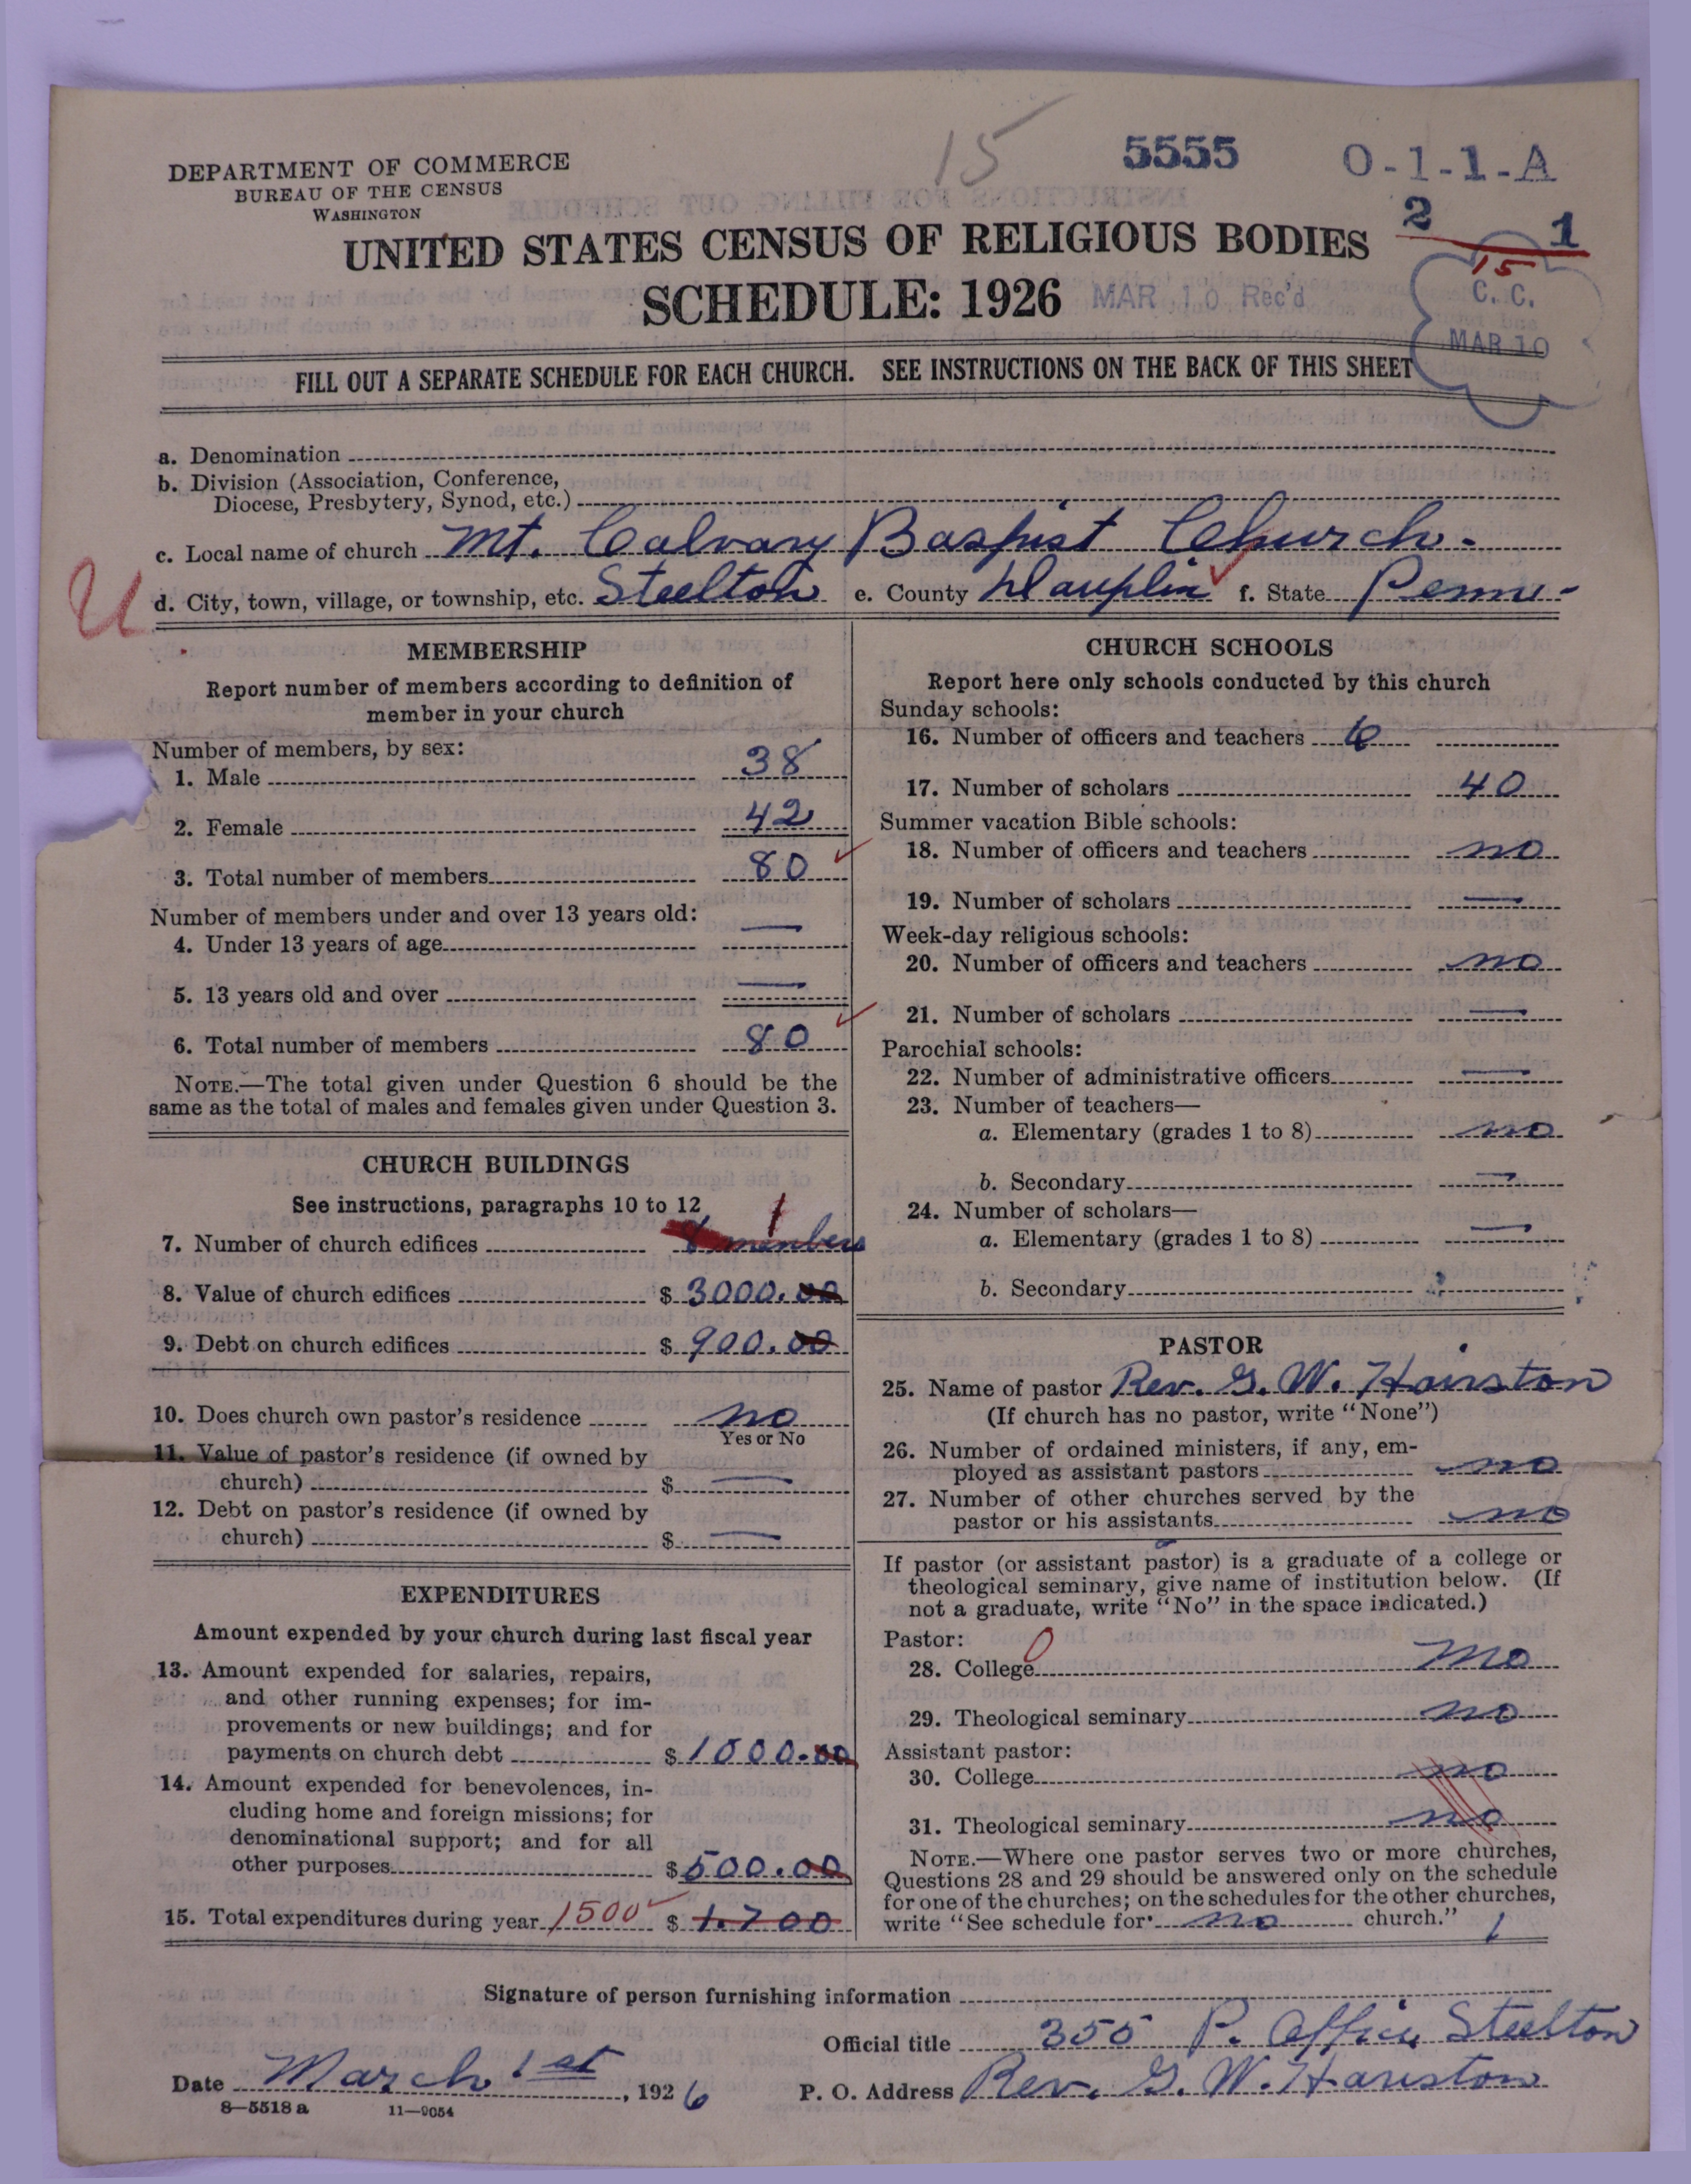 15
5555
0-1-1-A
DEPARTMENT OF COMMERCE
BUREAU OF THE CENSUS
WASHINGTON
2 1
15
UNITED STATES CENSUS OF RELIGIOUS BODIES
SCHEDULE: 1926
MAR 10 Rec'd
C. C.
MAR 10
FILL OUT A SEPARATE SCHEDULE FOR EACH CHURCH. SEE INSTRUCTIONS ON THE BACK OF THIS SHEET
a. Denomination
b. Division (Association, Conference,
Diocese, Presbytery, Synod, etc.)
c. Local name of church Mt. Calvary Baspist Church.
U
d. City, town, village, or township, etc. Steelton e. County Dauphin f. State Penn-
MEMBERSHIP
Report number of members according to definition of
member in your church
Number of members, by sex:
1. Male 38
2. Female 42
3. Total number of members 80
Number of members under and over 13 years old:
4. Under 13 years of age —
5. 13 years old and over —
6. Total number of members 80
NOTE.—The total given under Question 6 should be the
same as the total of males and females given under Question 3.
CHURCH BUILDINGS
See instructions, paragraphs 10 to 12
7. Number of church edifices 1 members
8. Value of church edifices $ 3000.00
9. Debt on church edifices $ 900.00
10. Does church own pastor's residence no
Yes or No
11. Value of pastor's residence (if owned by
church) $ —
12. Debt on pastor's residence (if owned by
church) $ —
EXPENDITURES
Amount expended by your church during last fiscal year
13. Amount expended for salaries, repairs,
and other running expenses; for im-
provements or new buildings; and for
payments on church debt $ 1000.00
14. Amount expended for benevolences, in-
cluding home and foreign missions; for
denominational support; and for all
other purposes $ 500.00
15. Total expenditures during year 1500 $ 1.700
CHURCH SCHOOLS
Report here only schools conducted by this church
Sunday schools:
16. Number of officers and teachers 6
17. Number of scholars 40
Summer vacation Bible schools:
18. Number of officers and teachers no
19. Number of scholars —
Week-day religious schools:
20. Number of officers and teachers no
21. Number of scholars —
Parochial schools:
22. Number of administrative officers —
23. Number of teachers—
a. Elementary (grades 1 to 8) no
b. Secondary —
24. Number of scholars—
a. Elementary (grades 1 to 8) —
b. Secondary
PASTOR
25. Name of pastor Rev. G. W. Hairston
(If church has no pastor, write "None")
26. Number of ordained ministers, if any, em-
ployed as assistant pastors no
27. Number of other churches served by the
pastor or his assistants no
If pastor (or assistant pastor) is a graduate of a college or
theological seminary, give name of institution below. (If
not a graduate, write "No" in the space indicated.)
Pastor: 0
28. College no
29. Theological seminary no
Assistant pastor:
30. College no
31. Theological seminary no
NOTE.—Where one pastor serves two or more churches,
Questions 28 and 29 should be answered only on the schedule
for one of the churches; on the schedules for the other churches,
write "See schedule for no church." 1
Signature of person furnishing information
Official title 355 P. Office, Steelton
Date March 1st, 1926
P. O. Address Rev. G. W. Hariston
8—5518 a 11—9054